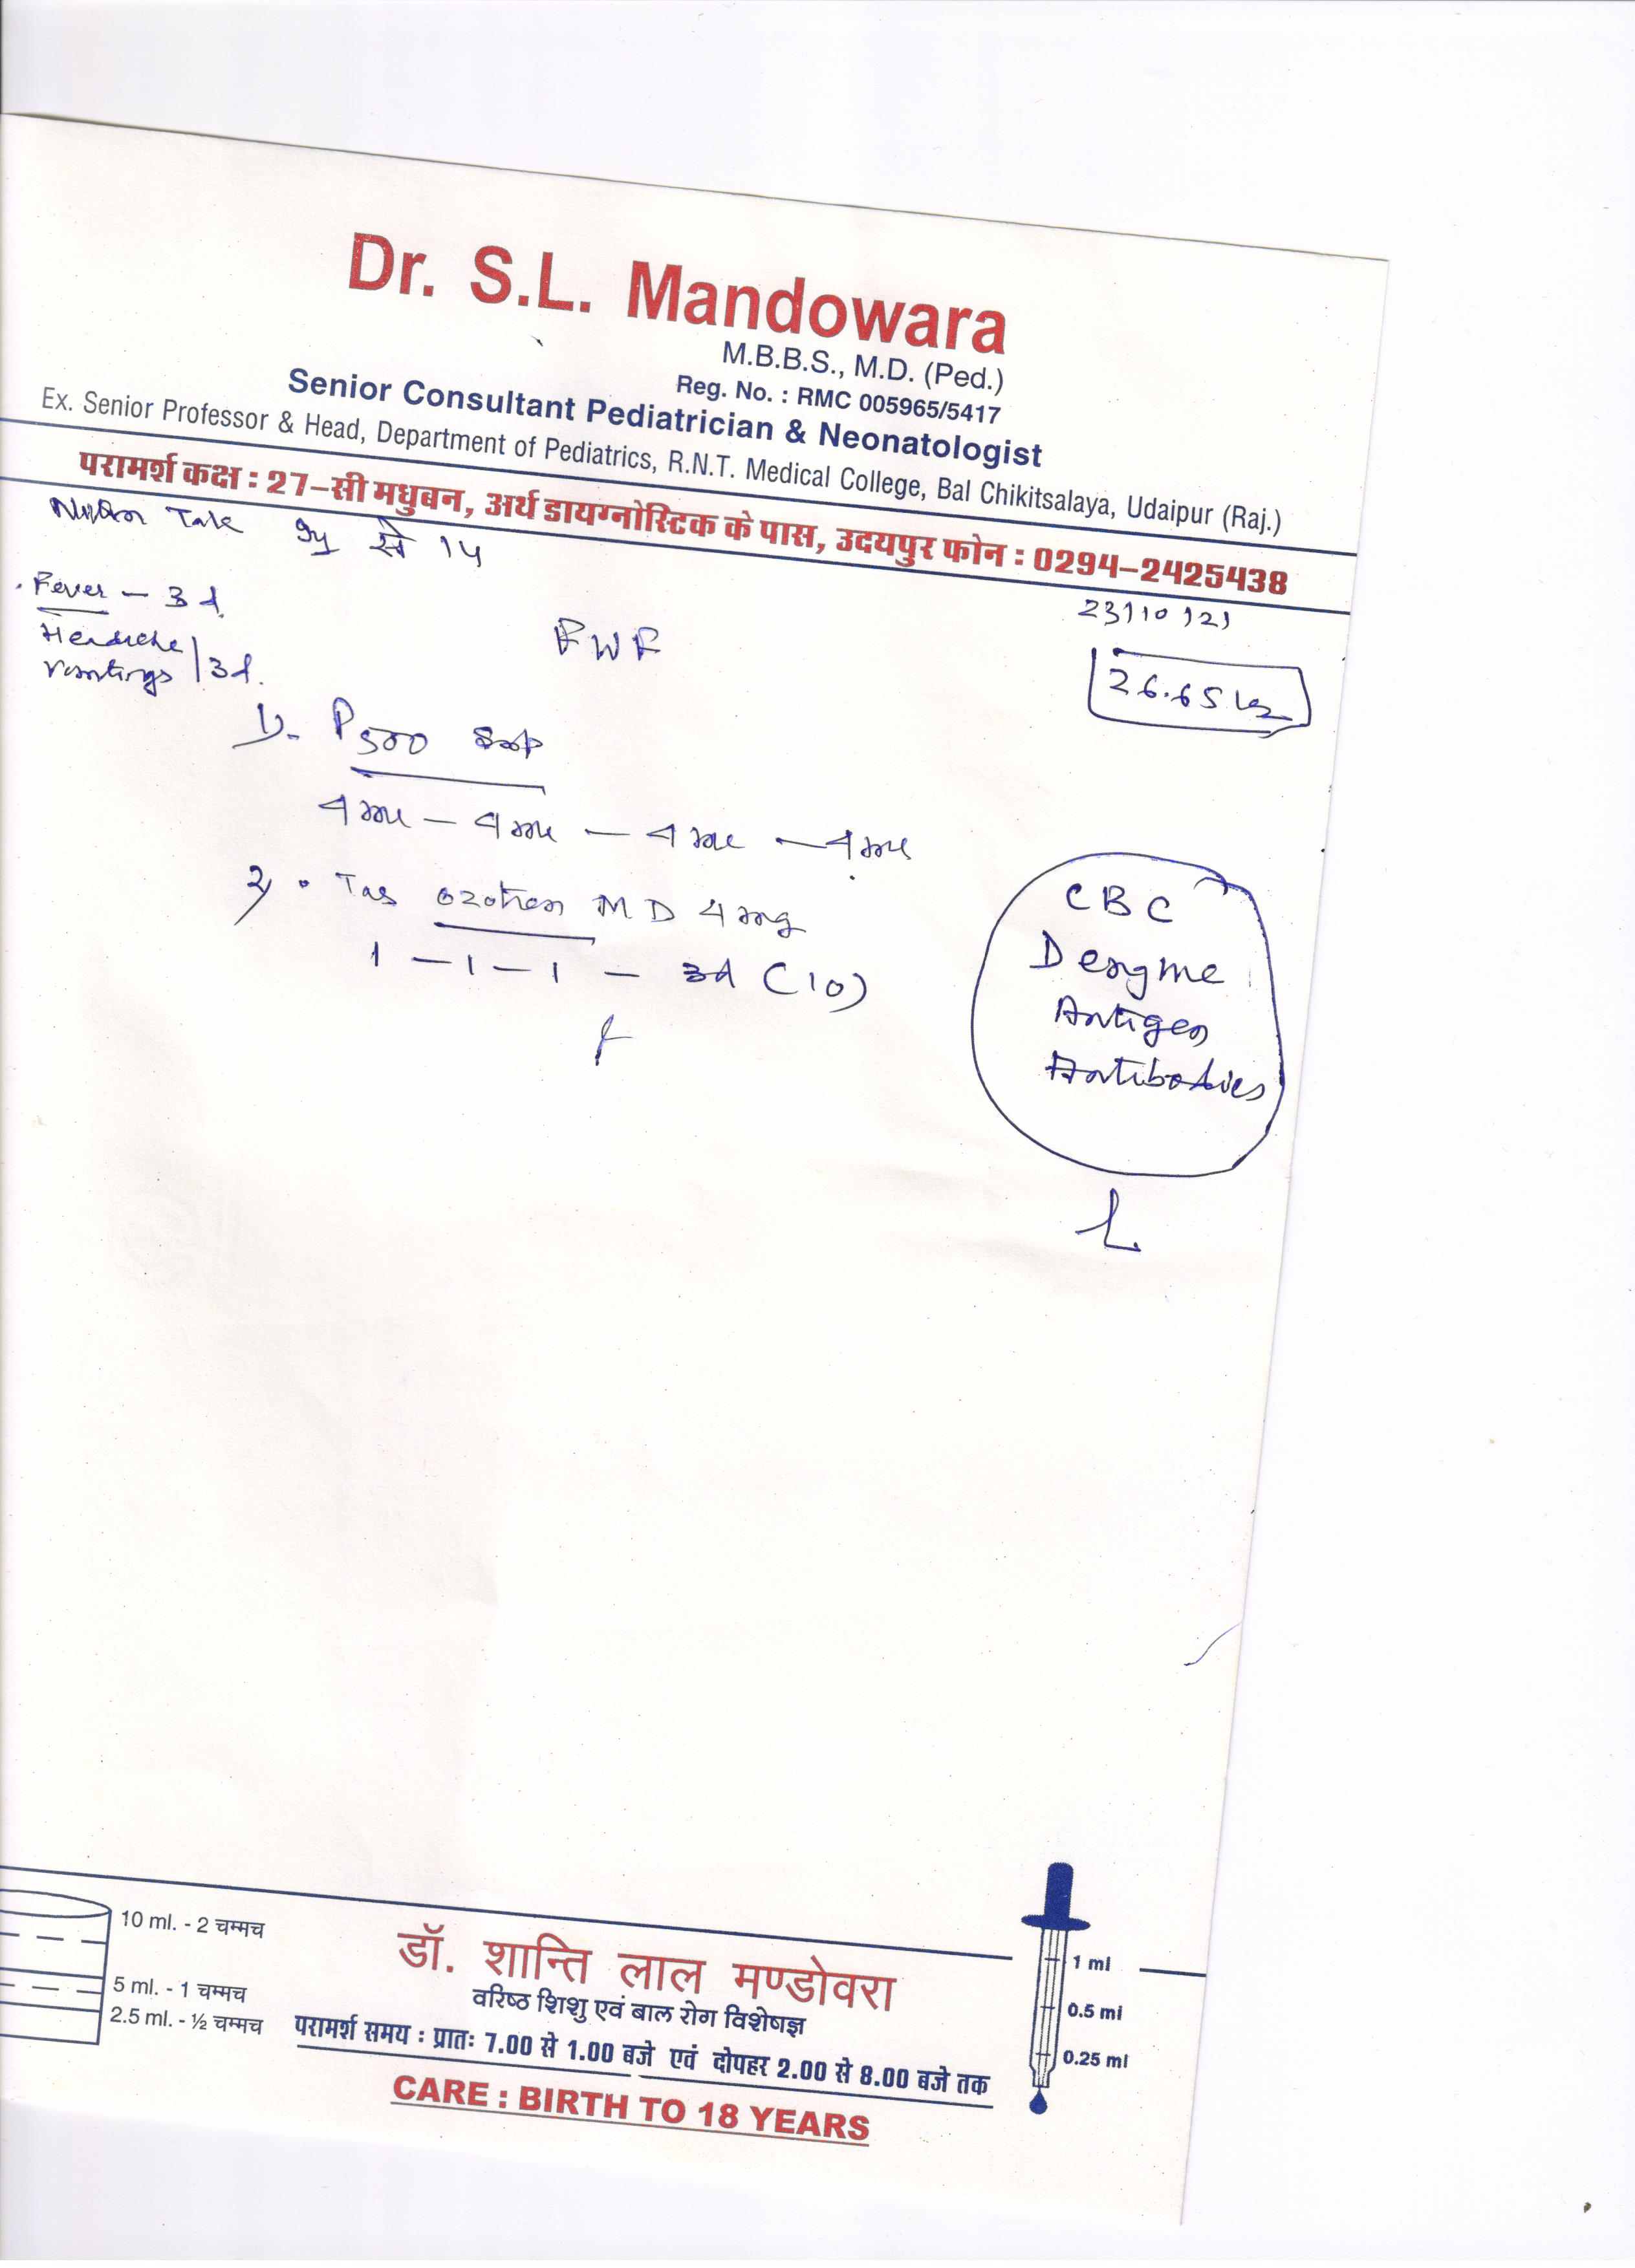 Dr. S.L. Mandowara
M.B.B.S., M.D. (Ped.)
Reg. No. : RMC 005965/5417
Senior Consultant Pediatrician & Neonatologist
Ex. Senior Professor & Head, Department of Pediatrics, R.N.T. Medical College, Bal Chikitsalaya, Udaipur (Raj.)
परामर्श कक्ष : 27-सी मधुबन, अर्थ डायग्नोस्टिक के पास, उदयपुर फोन : 0294-2425438
Tak 9y से 14
23/10/21
Fever - 3d
Headache
Vomtings / 3d.
FWF
26.65 kg
1). P500
4ml - 4ml - 4ml - 4ml
2). Tab MD 4mg
1 - 1 - 1 - 3d (10)
CBC
Dengue
Antigen
Antibodies
10 ml. - 2 चम्मच
5 ml. - 1 चम्मच
2.5 ml. - ½ चम्मच
डॉ. शान्ति लाल मण्डोवरा
वरिष्ठ शिशु एवं बाल रोग विशेषज्ञ
परामर्श समय : प्रातः 7.00 से 1.00 बजे एवं दोपहर 2.00 से 8.00 बजे तक
CARE : BIRTH TO 18 YEARS
1 ml
0.5 ml
0.25 ml